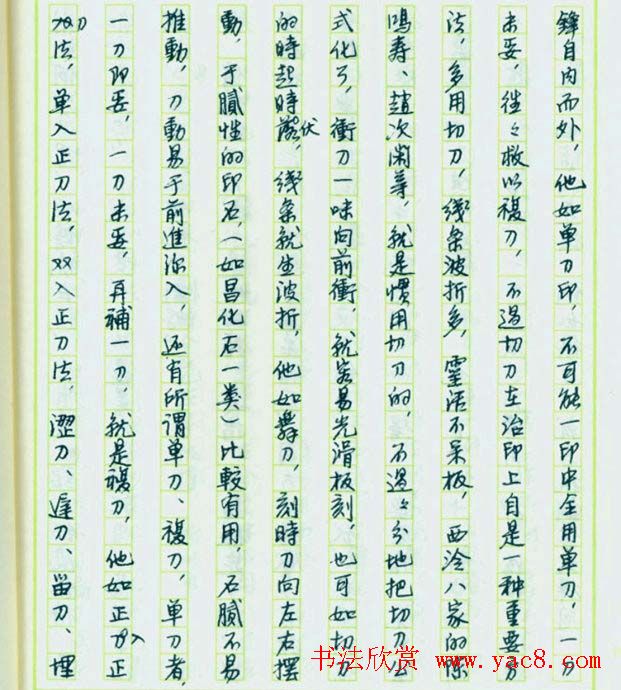 鋒自内而外，他如单刀印，不可能一印中全用单刀，一刀
未妥，往々救以複刀，不過切刀在治印上自是一种重要方
法，多用切刀，綫条波折多，靈活不呆板，西泠八家的陳
鴻寿、趙次閑等，就是慣用切刀的，不過々分地把切刀公
式化了，衝刀一味向前衝，就容易光滑板刻，也可如切刀
的時起時伏，綫条就生波折，他如舞刀，刻時刀向左右摆
動，于膩性的印石，（如昌化石一类）比較有用，石膩不易
推動，刀動易于前進深入，还有所謂单刀、複刀，单刀者，
一刀即妥，一刀未妥，再補一刀，就是複刀，他如正入正
刀法，单入正刀法，双入正刀法，澀刀、遅刀、留刀、埋
书法欣赏 www.yac8.com